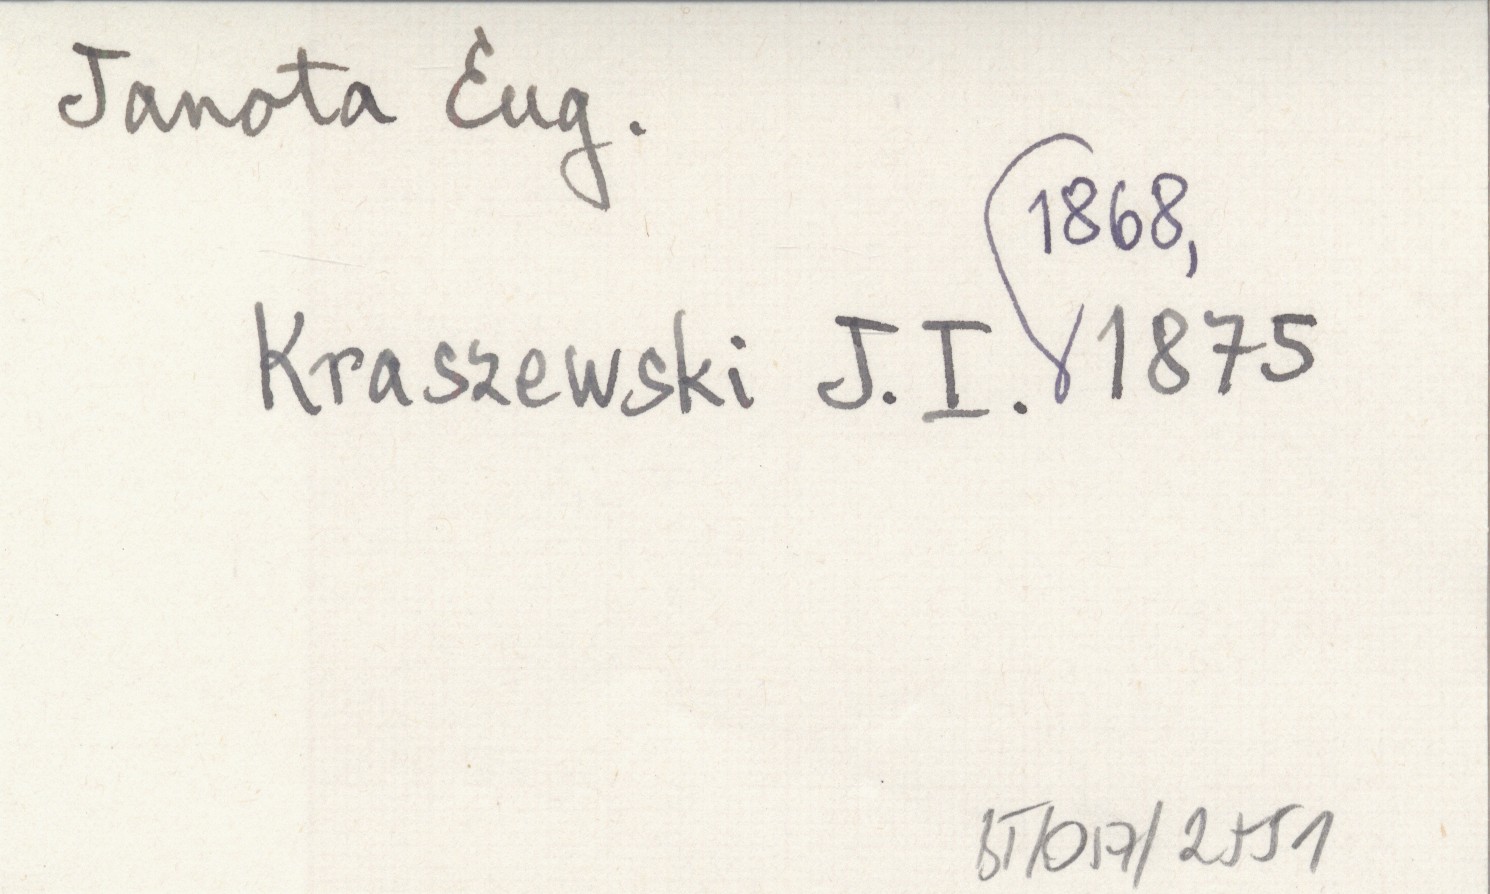 Janota Eug.
1868,
Kraszewski J.I. 1875
BT/017/2551